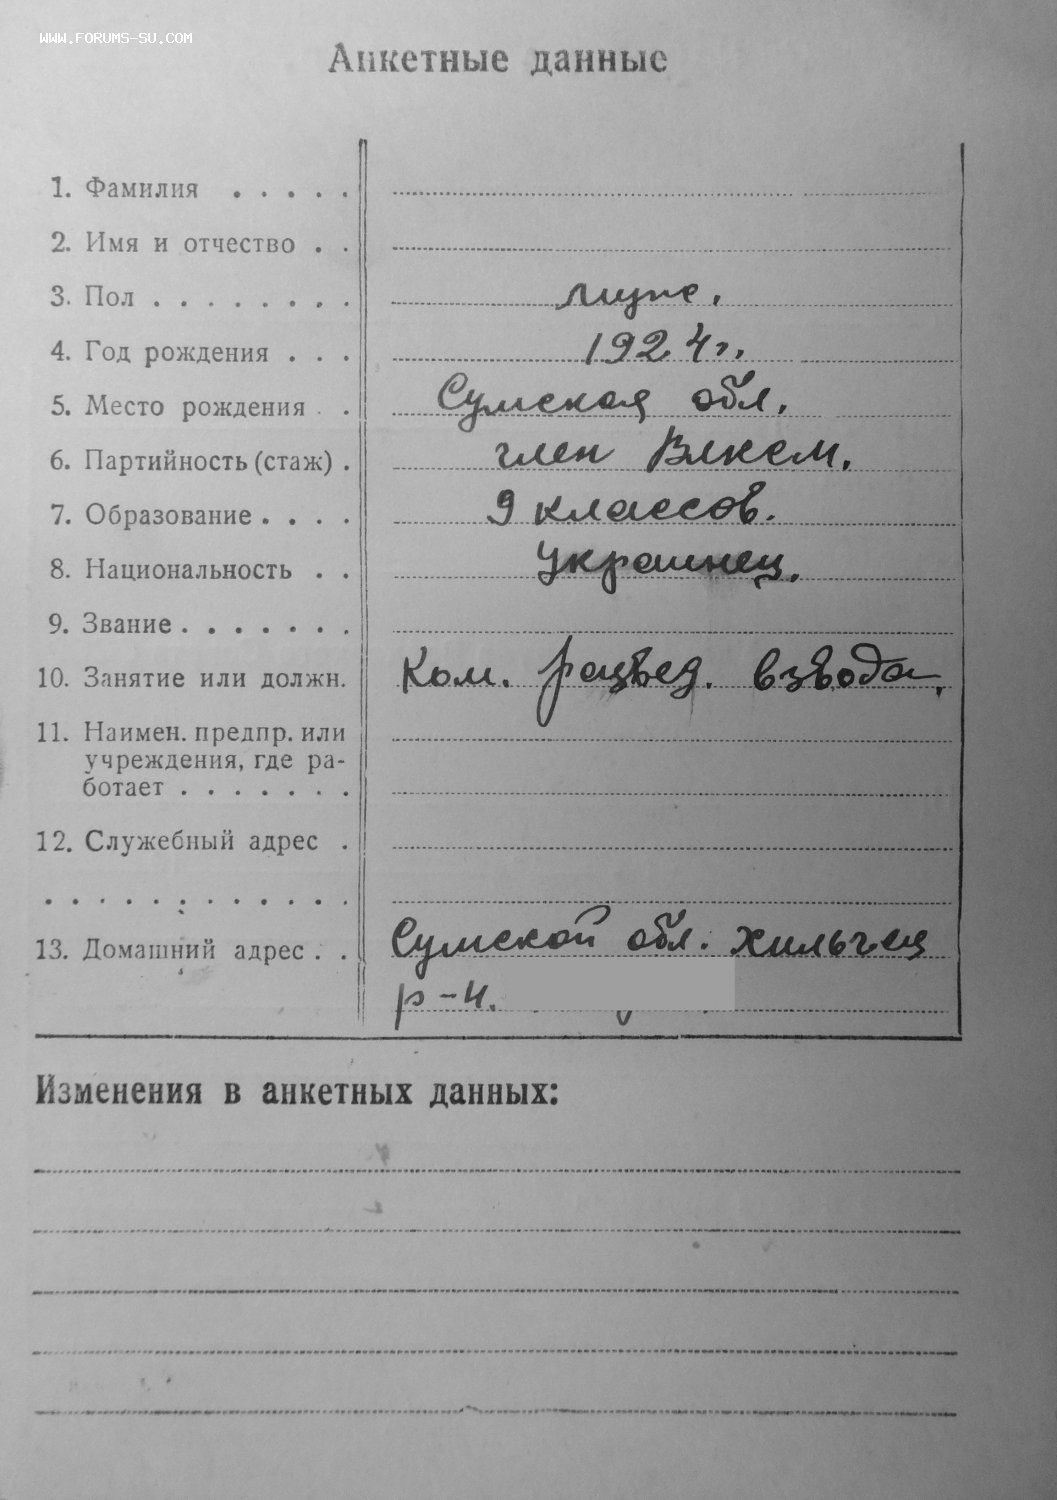 WWW.FORUMS-SU.COM
Анкетные данные
1. Фамилия . . . . .
2. Имя и отчество . .
3. Пол . . . . . . . . муже.
4. Год рождения . . . 1924 г.
5. Место рождения . . Сумская обл.
6. Партийность (стаж) . член Влксм.
7. Образование . . . . 9 классов.
8. Национальность . . Украинец.
9. Звание . . . . . . .
10. Занятие или должн. Ком. развед. взвода.
11. Наимен. предпр. или
учреждения, где ра-
ботает . . . . . . .
12. Служебный адрес .
. . . . . . . . . . . .
13. Домашний адрес . . Сумской обл. Хильчец
р-н.
Изменения в анкетных данных: